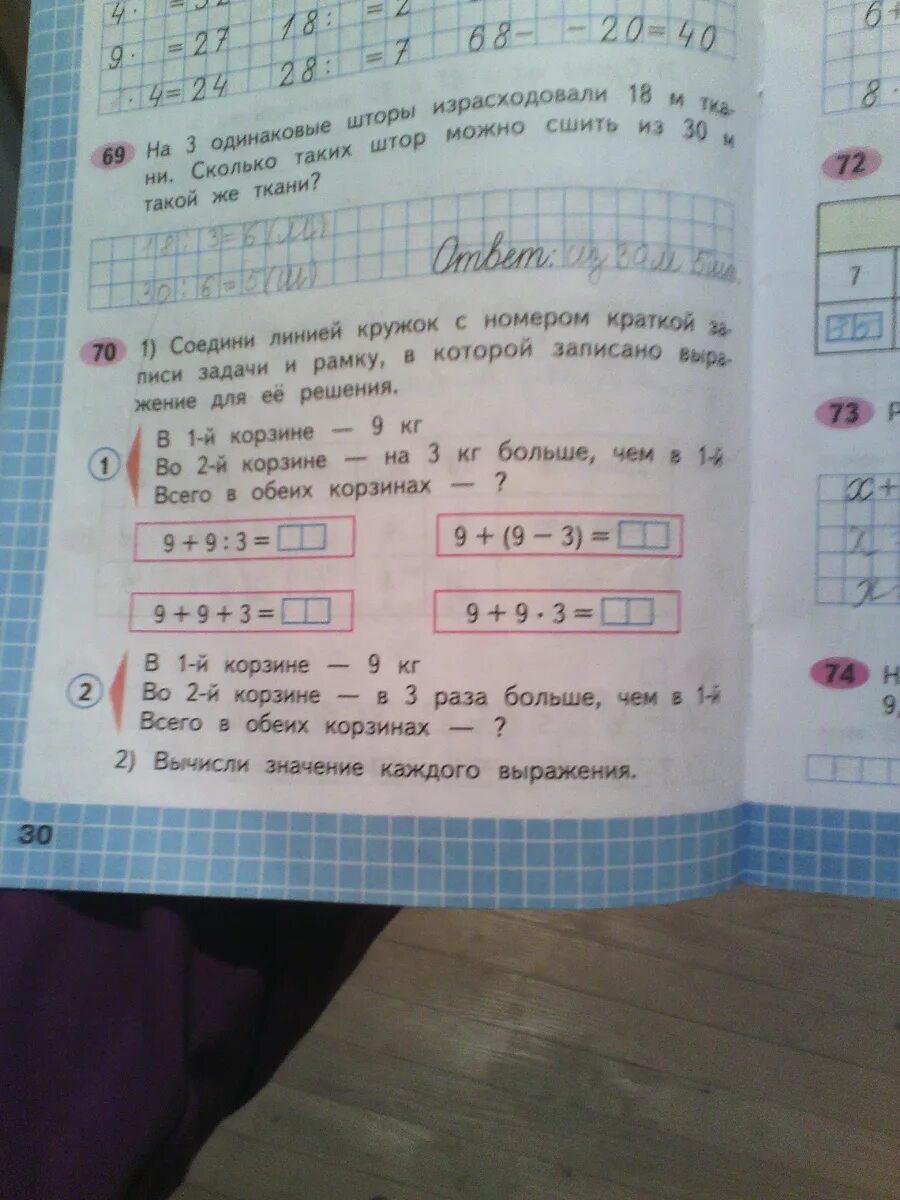 4 · = 32
9 · = 27 18 : = 2
· 4 = 24 28 : = 7 68 - - 20 = 40
69 На 3 одинаковые шторы израсходовали 18 м тка-
ни. Сколько таких штор можно сшить из 30 м
такой же ткани?
18 : 3 = 6 (м)
30 : 6 = 5 (ш) Ответ: из 30 м 5 шт.
70 1) Соедини линией кружок с номером краткой за-
писи задачи и рамку, в которой записано выра-
жение для её решения.
В 1-й корзине — 9 кг
1 Во 2-й корзине — на 3 кг больше, чем в 1-й
Всего в обеих корзинах — ?
9 + 9 : 3 = 9 + (9 − 3) =
9 + 9 + 3 = 9 + 9 · 3 =
В 1-й корзине — 9 кг
2 Во 2-й корзине — в 3 раза больше, чем в 1-й
Всего в обеих корзинах — ?
2) Вычисли значение каждого выражения.
30
6+
8 ·
72
7
73 Р
x +
x
x
74 Н
9,